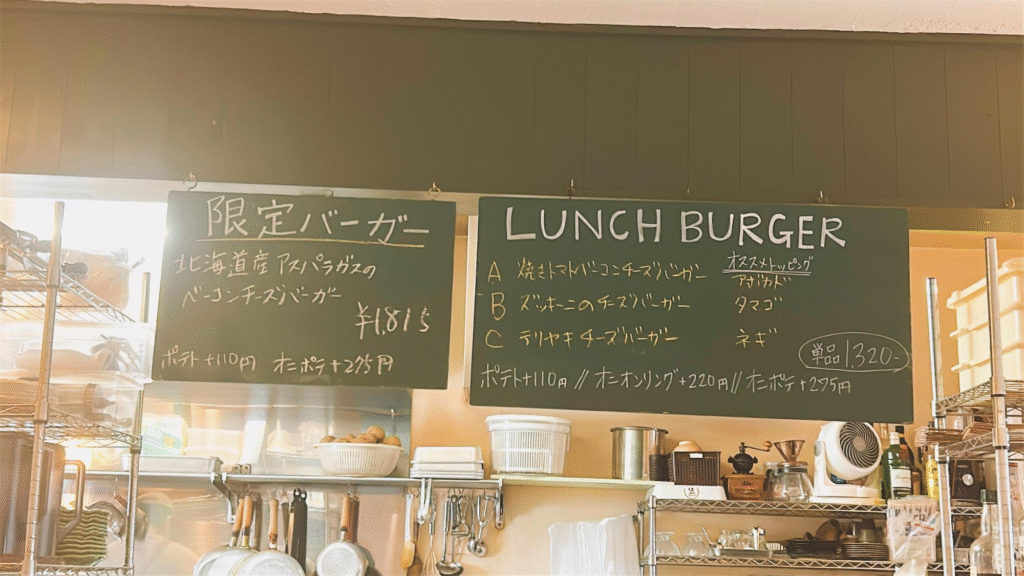 限定バーガー
北海道産アスパラガスの
ベーコンチーズバーガー
¥1,815
ポテト+110円 オニポテ+275円
LUNCH BURGER
オススメトッピング
A 焼きトマトベーコンチーズバーガー アボカド
B ズッキーニのチーズバーガー タマゴ
C テリヤキチーズバーガー ネギ
単品 1,320-
ポテト+110円 // オニオンリング+220円 // オニポテ+275円